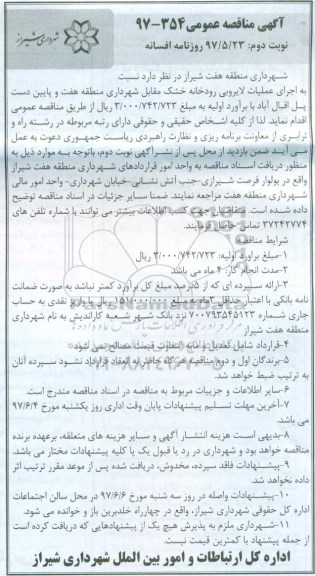 آگهی مناقصه عمومی ۳۵۴-۹۷
نوبت دوم: ۹۷/۵/۲۳ روزنامه افسانه
شهرداری شیراز
شهرداری منطقه هفت شیراز در نظر دارد نسبت
به اجرای عملیات لایروبی رودخانه خشک مقابل شهرداری منطقه هفت و پایین دست
پل اقبال آباد با برآورد اولیه به مبلغ ۳/۰۰۰/۷۴۲/۷۲۳ ریال از طریق مناقصه عمومی
اقدام نماید. لذا از کلیه اشخاص حقیقی و حقوقی دارای رتبه مربوطه در رشته راه و
ترابری از معاونت برنامه ریزی و نظارت راهبردی ریاست جمهوری دعوت به عمل
می آید ضمن بازدید از محل پس از نشر آگهی نوبت دوم، باتوجه به موارد ذیل به
منظور دریافت اسناد مناقصه به واحد امور قراردادهای شهرداری منطقه هفت شیراز
واقع در بولوار فرصت شیرازی-جنب آتش نشانی-خیابان شهرداری- واحد امور مالی
شهرداری منطقه هفت مراجعه نمایند. ضمنا سایر جزئیات در اسناد مناقصه توضیح
داده شده است. متقاضیان جهت کسب اطلاعات بیشتر می توانند با شماره تلفن های
۳۷۲۴۲۷۷۴ تماس حاصل فرمایند.
شرایط مناقصه
۱-مبلغ برآورد اولیه: ۳/۰۰۰/۷۴۲/۷۲۳ ریال
۲-مدت انجام کار: ۴ ماه می باشد
۳-ارائه سپرده ای که از ۵درصد مبلغ کل برآورد کمتر نباشد به صورت ضمانت
نامه بانکی با اعتبار حداقل ۳ماه به مبلغ ریال یا واریز نقدی به حساب
جاری شماره ۷۰۰۷۹۳۵۴۵۱۲۳ نزد بانک شهر شعبه کاراندیش به نام شهرداری
منطقه هفت شیراز
۴-قرارداد شامل تعدیل و مابه التفاوت قیمت مصالح نمی شود
۵-برندگان اول و دوم مناقصه هرگاه حاضر به انعقاد قرارداد نشود سپرده آنان
به ترتیب ضبط خواهد شد.
۶-سایر اطلاعات و جزییات مربوط به مناقصه در اسناد مناقصه مندرج است.
۷-آخرین مهلت تسلیم پیشنهادات پایان وقت اداری روز یکشنبه مورخ ۹۷/۶/۴
می باشد.
۸-بدیهی است هزینه انتشار آگهی و سایر هزینه های متعلقه، برعهده برنده
مناقصه خواهد بود و شهرداری در رد یا قبول یک یا کلیه پیشنهادات مختار می باشد.
۹-پیشنهادات فاقد سپرده، مخدوش، دریافت شده پس از موعد مقرر ترتیب اثر
داده نخواهد شد.
۱۰-پیشنهادات واصله در روز سه شنبه مورخ ۹۷/۶/۶ در محل سالن اجتماعات
اداره کل حقوقی شهرداری، واقع در چهاراه خلدبرین باز و خوانده می شود.
۱۱-شهرداری ملزم به پذیرش هیچ یک از پیشنهادهایی که دریافت کرده است
از جمله پیشنهاد با کمترین قیمت نیست.
اداره کل ارتباطات و امور بین الملل شهرداری شیراز